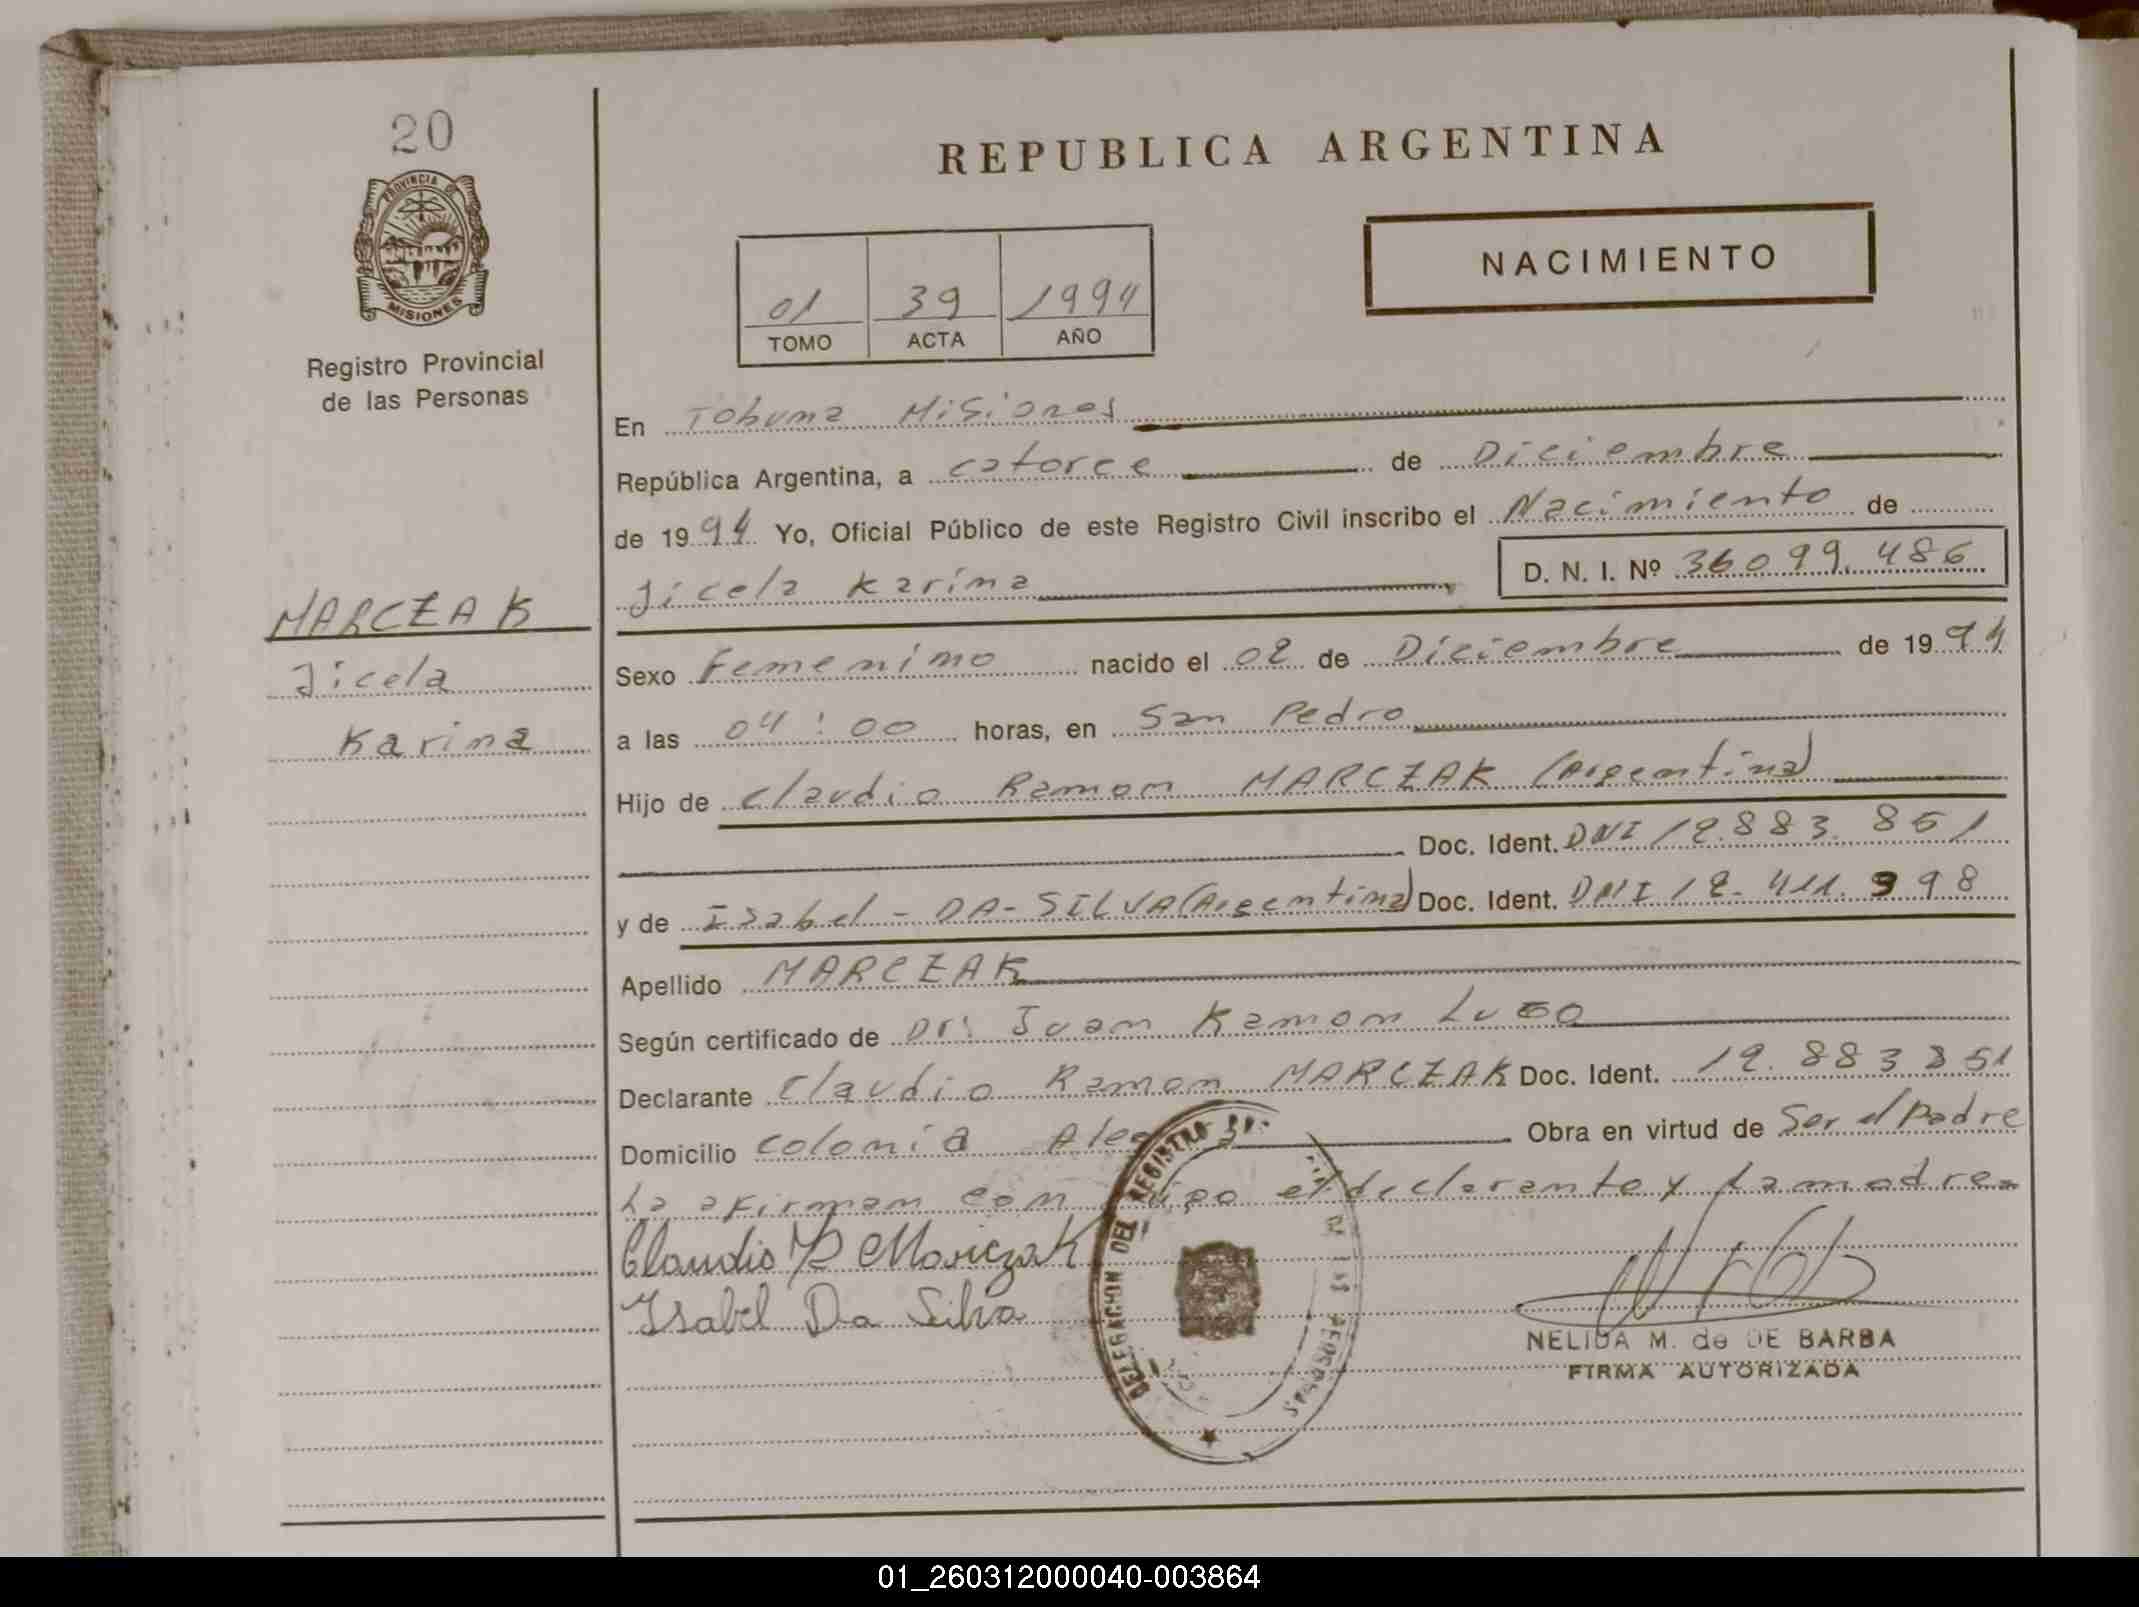 20
PROVINCIA DE
MISIONES
Registro Provincial
de las Personas
REPUBLICA ARGENTINA
NACIMIENTO
01 39 1994
TOMO ACTA AÑO
En Tobuna Misiones
República Argentina, a catorce de Diciembre
de 1994 Yo, Oficial Público de este Registro Civil inscribo el Nacimiento de
Jicela Karina D. N. I. Nº 36099.486
MARCZAK
Jicela
Karina
Sexo Femenino nacido el 02 de Diciembre de 1994
a las 04:00 horas, en San Pedro
Hijo de Claudio Ramon MARCZAK (Argentina)
Doc. Ident. DNI 12.883.851
y de Isabel - DA - SILVA (Argentina) Doc. Ident. DNI 12.411.998
Apellido MARCZAK
Según certificado de Dr: Juan Ramon Lugo
Declarante Claudio Ramon MARCZAK Doc. Ident. 12.883851
Domicilio colonia Obra en virtud de Ser el Padre
La afirman con el declarante y la madre
Claudio R Marczak
Isabel Da Silva
DELEGACION DEL REGISTRO
DE LAS PERSONAS
NELIDA M. de DE BARBA
FIRMA AUTORIZADA
01_260312000040-003864